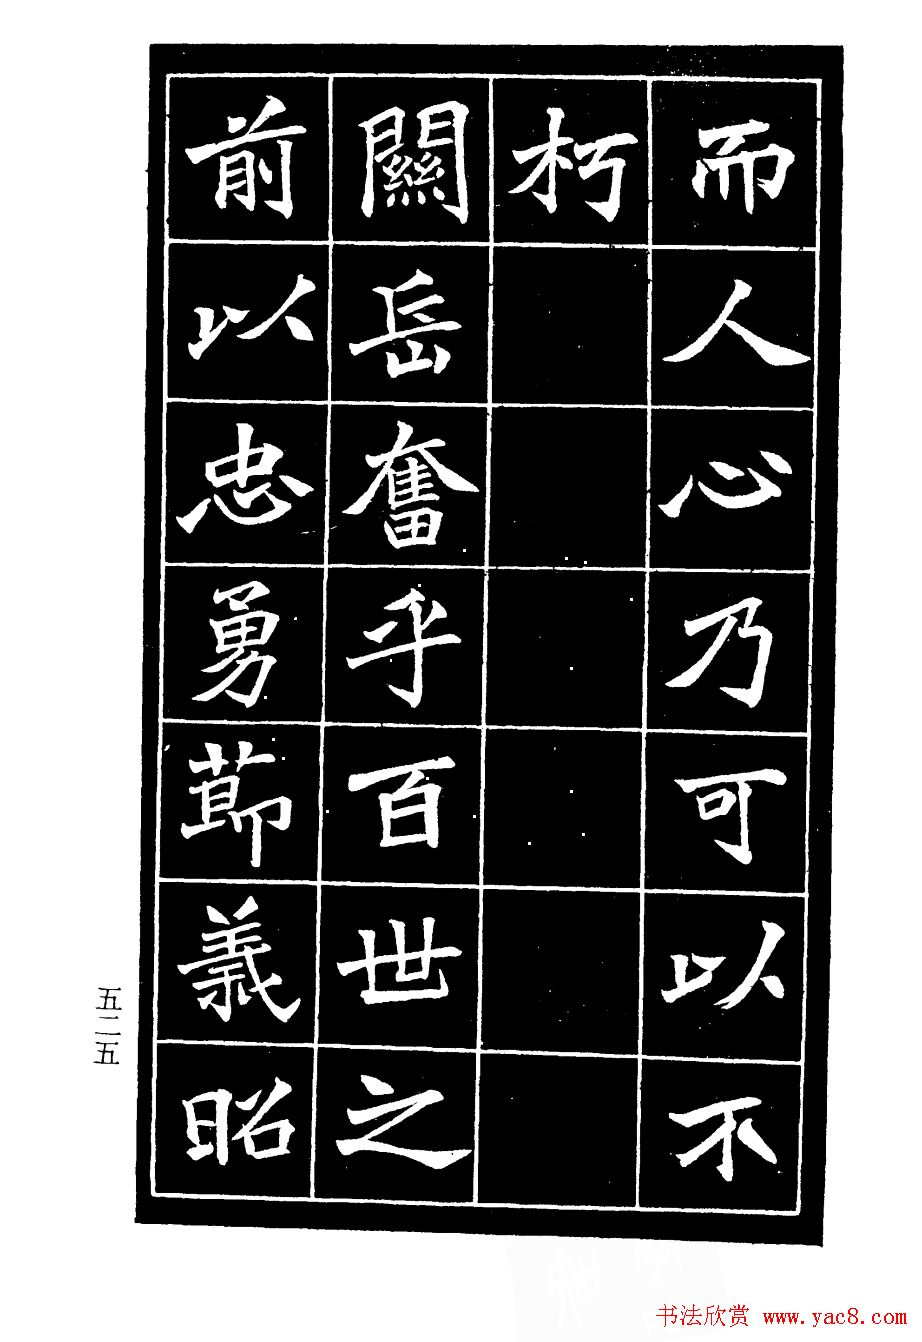 而人心乃可以不
朽
關岳奮乎百世之
前以忠勇節義昭
五二五
书法欣赏 www.yac8.com